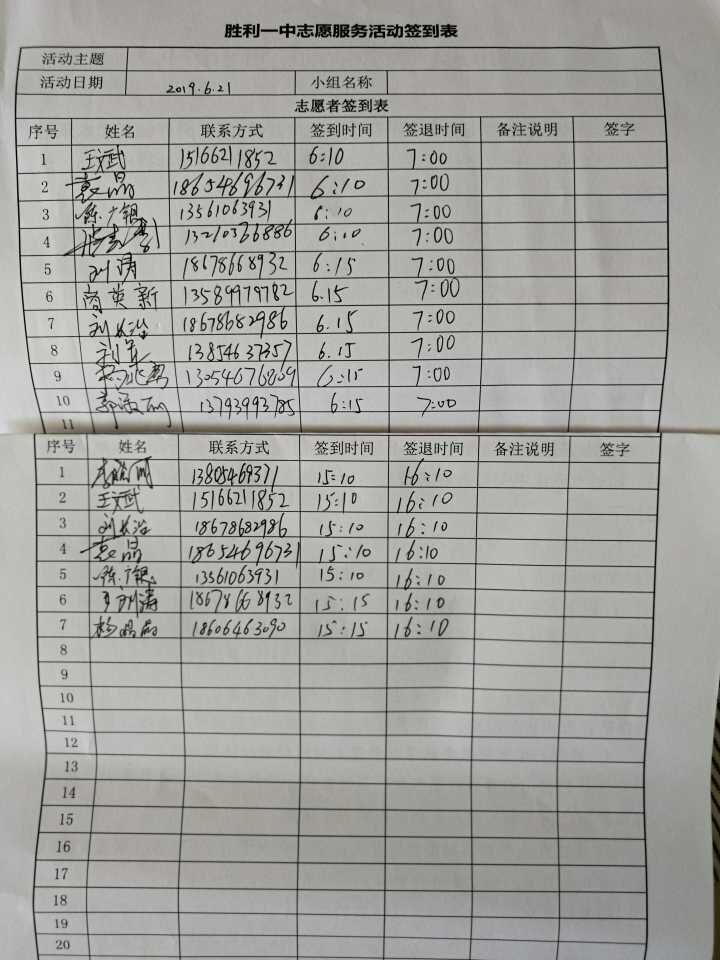 胜利一中志愿服务活动签到表
活动主题
活动日期 2019.6.21 小组名称
志愿者签到表
序号 姓名 联系方式 签到时间 签退时间 备注说明 签字
1 王斌 15166211852 6:10 7:00
2 袁晶 18654696731 6:10 7:00
3 陈广银 13561063931 6:10 7:00
4 13210366886 6:10 7:00
5 刘涛 18678668932 6:15 7:00
6 商英新 13589979782 6.15 7:00
7 刘长治 18678682986 6.15 7:00
8 13854637357 6.15 7:00
9 13054676809 6:15 7:00
10 13793993785 6:15 7:00
11
序号 姓名 联系方式 签到时间 签退时间 备注说明 签字
1 13805469371 15:10 16:10
2 王斌 15166211852 15:10 16:10
3 刘长治 18678682986 15:10 16:10
4 袁晶 18654696731 15:10 16:10
5 陈广银 13561063931 15:10 16:10
6 刘涛 18678668932 15:15 16:10
7 18606463090 15:15 16:10
8
9
10
11
12
13
14
15
16
17
18
19
20